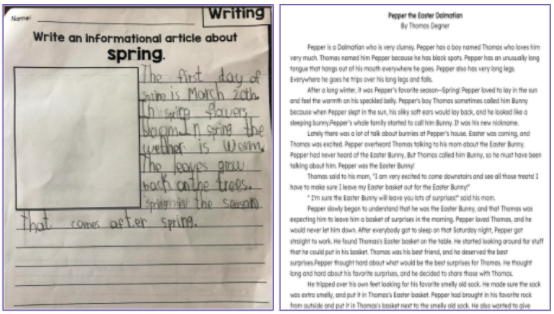 Name:
Writing
Write an informational article about
spring.
The first day of
spring is March 20th.
In spring flowers
bloom. In spring the
wether is worm.
The leaves grow
back on the trees.
the season
That comes after spring.
Pepper the Easter Dalmatian
By Thomas Degner
Pepper is a Dalmatian who is very clumsy. Pepper has a boy named Thomas who loves him
very much. Thomas named him Pepper because he has black spots. Pepper has an unusually long
tongue that hangs out of his mouth everywhere he goes. Pepper also has very long legs.
Everywhere he goes he trips over his long legs and falls.
After a long winter, it was Pepper's favorite season—Spring! Pepper loved to lay in the sun
and feel the warmth on his speckled belly. Pepper's boy Thomas sometimes called him Bunny
because when Pepper slept in the sun, his silky soft ears would lay back, and he looked like a
sleeping bunny.Pepper's whole family started to call him Bunny. It was his new nickname.
Lately there was a lot of talk about bunnies at Pepper's house. Easter was coming, and
Thomas was excited. Pepper overheard Thomas talking to his mom about the Easter Bunny.
Pepper had never heard of the Easter Bunny. But Thomas called him Bunny, so he must have been
talking about him. Pepper was the Easter Bunny!
Thomas said to his mom, "I am very excited to come downstairs and see all those treats! I
have to make sure I leave my Easter basket out for the Easter Bunny!"
" I'm sure the Easter Bunny will leave you lots of surprises!" said his mom.
Pepper slowly began to understand that he was the Easter Bunny, and that Thomas was
expecting him to leave him a basket of surprises in the morning. Pepper loved Thomas, and he
would never let him down. After everybody got to sleep on that Saturday night, Pepper got
straight to work. He found Thomas's Easter basket on the table. He started looking around for stuff
that he could put in his basket. Thomas was his best friend, and he deserved the best
surprises.Pepper thought hard about what would be the best surprises for Thomas. He thought
long and hard about his favorite surprises, and he decided to share those with Thomas.
He tripped over his own feet looking for his favorite smelly old sock. He made sure the sock
was extra smelly, and put it in Thomas's Easter basket. Pepper had brought in his favorite rock
from outside and put it in Thomas's basket next to the smelly old sock. He also wanted to give